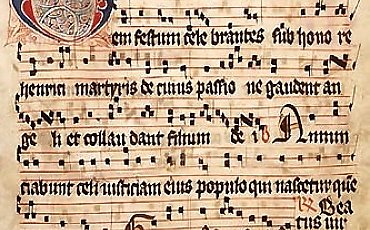 em festum cele brantes sub hono re
henrici martyris de cuius passio ne gaudent an
ge li et collau dant filium de i V Annun
ciabunt celi iusticiam eius populo qui nascetur que
Bea
tus vir